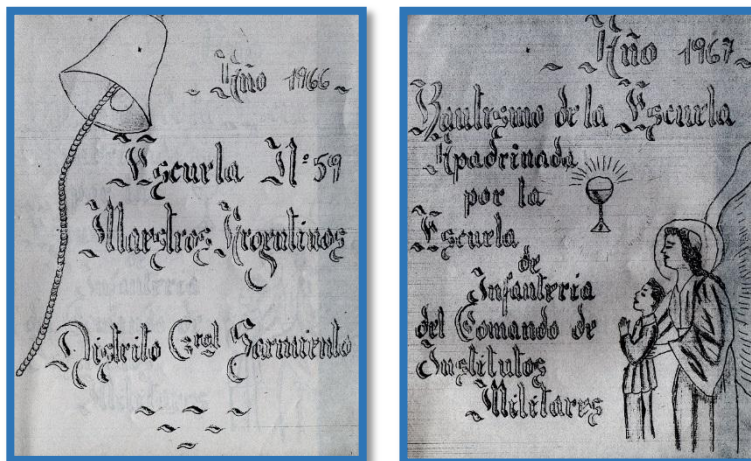 Año 1966
Escuela N° 59
Maestros Argentinos
Distrito Gral Sarmiento
Año 1967
Bautismo de la Escuela
Apadrinada
por la
Escuela
de
Infantería
del Comando de
Institutos
Militares